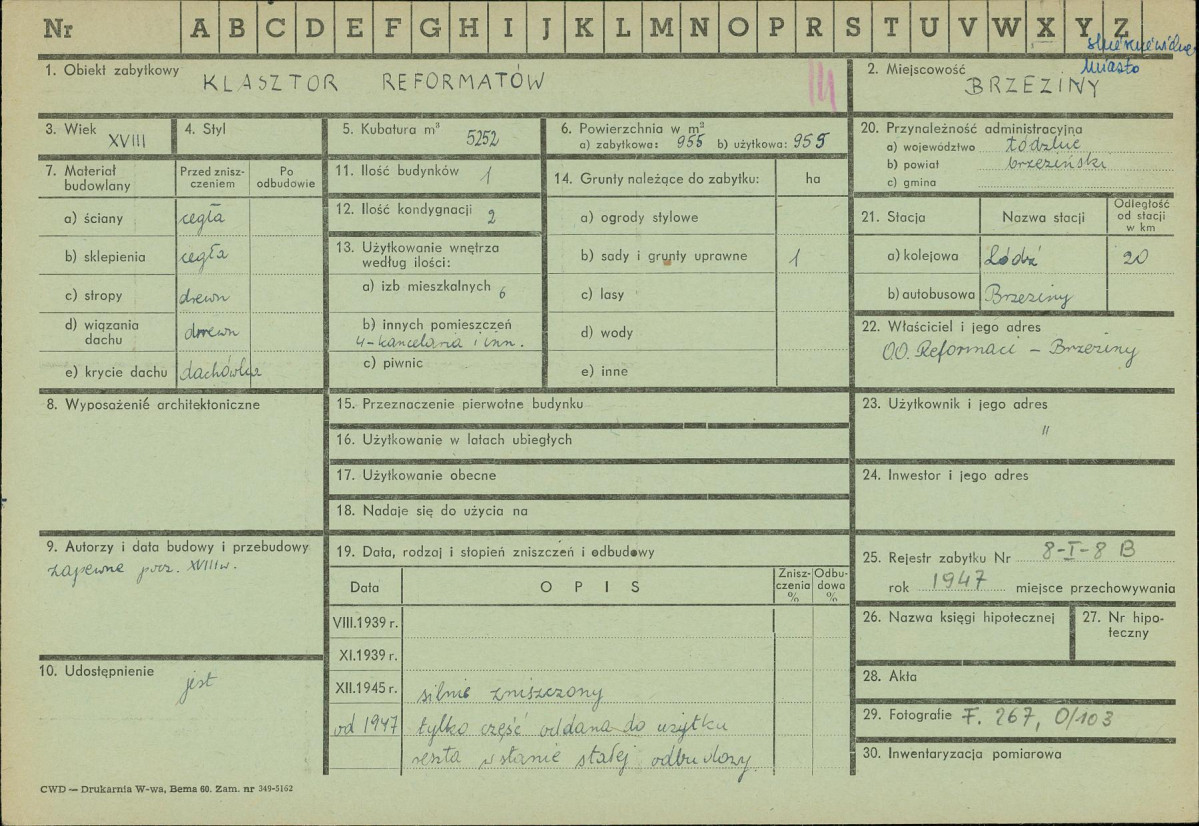 Nr A B C D E F G H I J K L M N O P R S T U V W X Y Z
miasto
1. Obiekt zabytkowy KLASZTOR REFORMATÓW
2. Miejscowość BRZEZINY
3. Wiek XVIII
4. Styl
5. Kubatura m³ 5252
6. Powierzchnia w m²
a) zabytkowa: 955 b) użytkowa: 955
20. Przynależność administracyjna
a) województwo łódzkie
b) powiat brzeziński
c) gmina
7. Materiał budowlany
Przed zniszczeniem
Po odbudowie
a) ściany cegła
b) sklepienia cegła
c) stropy drewn
d) wiązania dachu drewn
e) krycie dachu dachówka
11. Ilość budynków 1
12. Ilość kondygnacji 2
13. Użytkowanie wnętrza
według ilości:
a) izb mieszkalnych 6
b) innych pomieszczeń
4-kancelaria i inn.
c) piwnic
14. Grunty należące do zabytku: ha
a) ogrody stylowe
b) sady i grunty uprawne 1
c) lasy
d) wody
e) inne
21. Stacja Nazwa stacji Odległość od stacji w km
a) kolejowa Łódź 20
b) autobusowa Brzeziny
22. Właściciel i jego adres
OO. Reformaci – Brzeziny
8. Wyposażenie architektoniczne
15. Przeznaczenie pierwotne budynku
16. Użytkowanie w latach ubiegłych
17. Użytkowanie obecne
18. Nadaje się do użycia na
23. Użytkownik i jego adres
"
24. Inwestor i jego adres
9. Autorzy i data budowy i przebudowy
zapewne pocz. XVIII w.
10. Udostępnienie
jest
19. Data, rodzaj i stopień zniszczeń i odbudowy
Data OPIS Zniszczenia % Odbudowa %
VIII.1939 r.
XI.1939 r.
XII.1945 r. silnie zniszczony
od 1947 tylko część oddana do użytku
reszta w stanie stałej odbudowy
25. Rejestr zabytku Nr 8-I-8 B
rok 1947 miejsce przechowywania
26. Nazwa księgi hipotecznej
27. Nr hipoteczny
28. Akta
29. Fotografie F. 267, O/103
30. Inwentaryzacja pomiarowa
CWD — Drukarnia W-wa, Bema 60. Zam. nr 349-5162